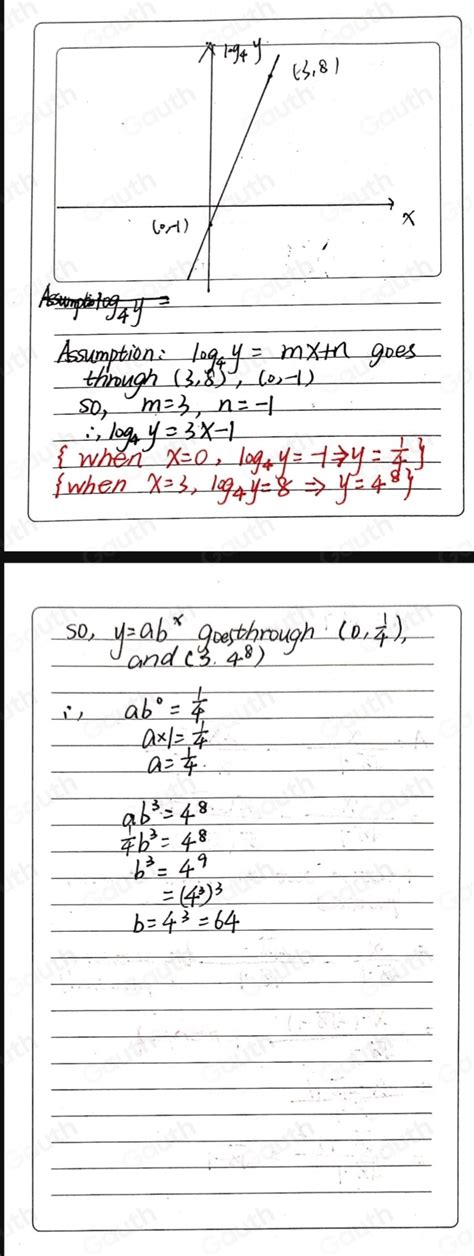 log₄ y
(3,8)
(0,-1)
x
Assumption: log₄ y = mx+n goes
through (3,8), (0,-1)
so, m=3, n=-1
∴ log₄ y = 3x-1
{when x=0, log₄ y=-1⇒y=1/4}
{when x=3, log₄ y=8 ⇒ y=4⁸}
so, y=abˣ goes through (0, 1/4),
and (3. 4⁸)
∴, ab⁰ = 1/4
a×1=1/4
a=1/4.
ab³=4⁸
1/4b³=4⁸
b³=4⁹
=(4³)³
b=4³=64